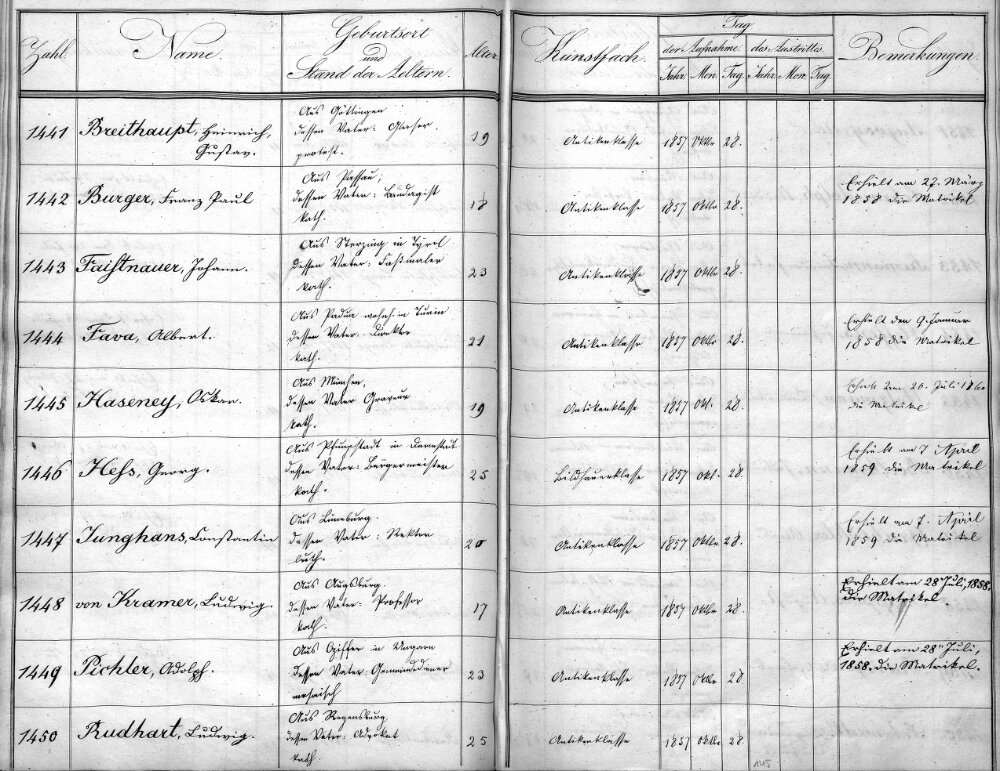 Zahl. Name. Geburtsort und Stand der Aeltern. Alter Kunstfach. Tag der Aufnahme. des Austrittes. Jahr. Mon. Tag. Jahr. Mon. Tag. Bemerkungen.
1441 Breithaupt, Heinrich, Gustav.
Aus Göttingen
dessen Vater: Glaser.
protest.
19 Antikenklasse 1857 Oktbr 28.
1442 Burger, Franz Paul
Aus Passau,
dessen Vater: Bandagist
kath.
18 Antikenklasse 1857 Oktbr 28.
Erhielt am 27. März
1858 die Matrikel
1443 Faistnauer, Johann.
Aus Sterzing in Tyrol
dessen Vater: Faßmaler
kath.
23 Antikenklasse 1857 Oktbr 28.
1444 Fava, Albert.
Aus Padua wohnh. in Turin
dessen Vater: Direktor
kath.
21 Antikenklasse 1857 Oktbr 28.
Erhielt den 9. Januar
1858 die Matrikel
1445 Haseney, Oskar.
Aus München,
dessen Vater Graveur
kath.
19 Antikenklasse 1857 Okt. 28.
Erhielt den 26. Juli 1860
die Matrikel
1446 Hess, Georg.
Aus Pfungstadt in Darmstadt
dessen Vater: Bürgermeister
kath.
25 Bildhauerklasse 1857 Okt. 28.
Erhielt am 7 April
1859 die Matrikel
1447 Junghans, Constantin
Aus Lüneburg.
dessen Vater: Rektor
luth.
20 Antikenklasse 1857 Oktbr. 28.
Erhielt am 7. April
1859 die Matrikel
1448 von Kramer, Ludwig.
Aus Augsburg.
dessen Vater: Professor
kath.
17 Antikenklasse 1857 Oktbr 28.
Erhielt am 28 Juli, 1858.
die Matrikel
1449 Pichler, Adolph.
Aus Cziffer in Ungarn
dessen Vater: Gemeindediener
mosaisch
23 Antikenklasse 1857 Oktbr 28
Erhielt am 28 Juli,
1858. die Matrikel.
1450 Rudhart, Ludwig.
Aus Regensburg
dessen Vater: Advokat
kath.
25 Antikenklasse 1857 Oktbr 28.